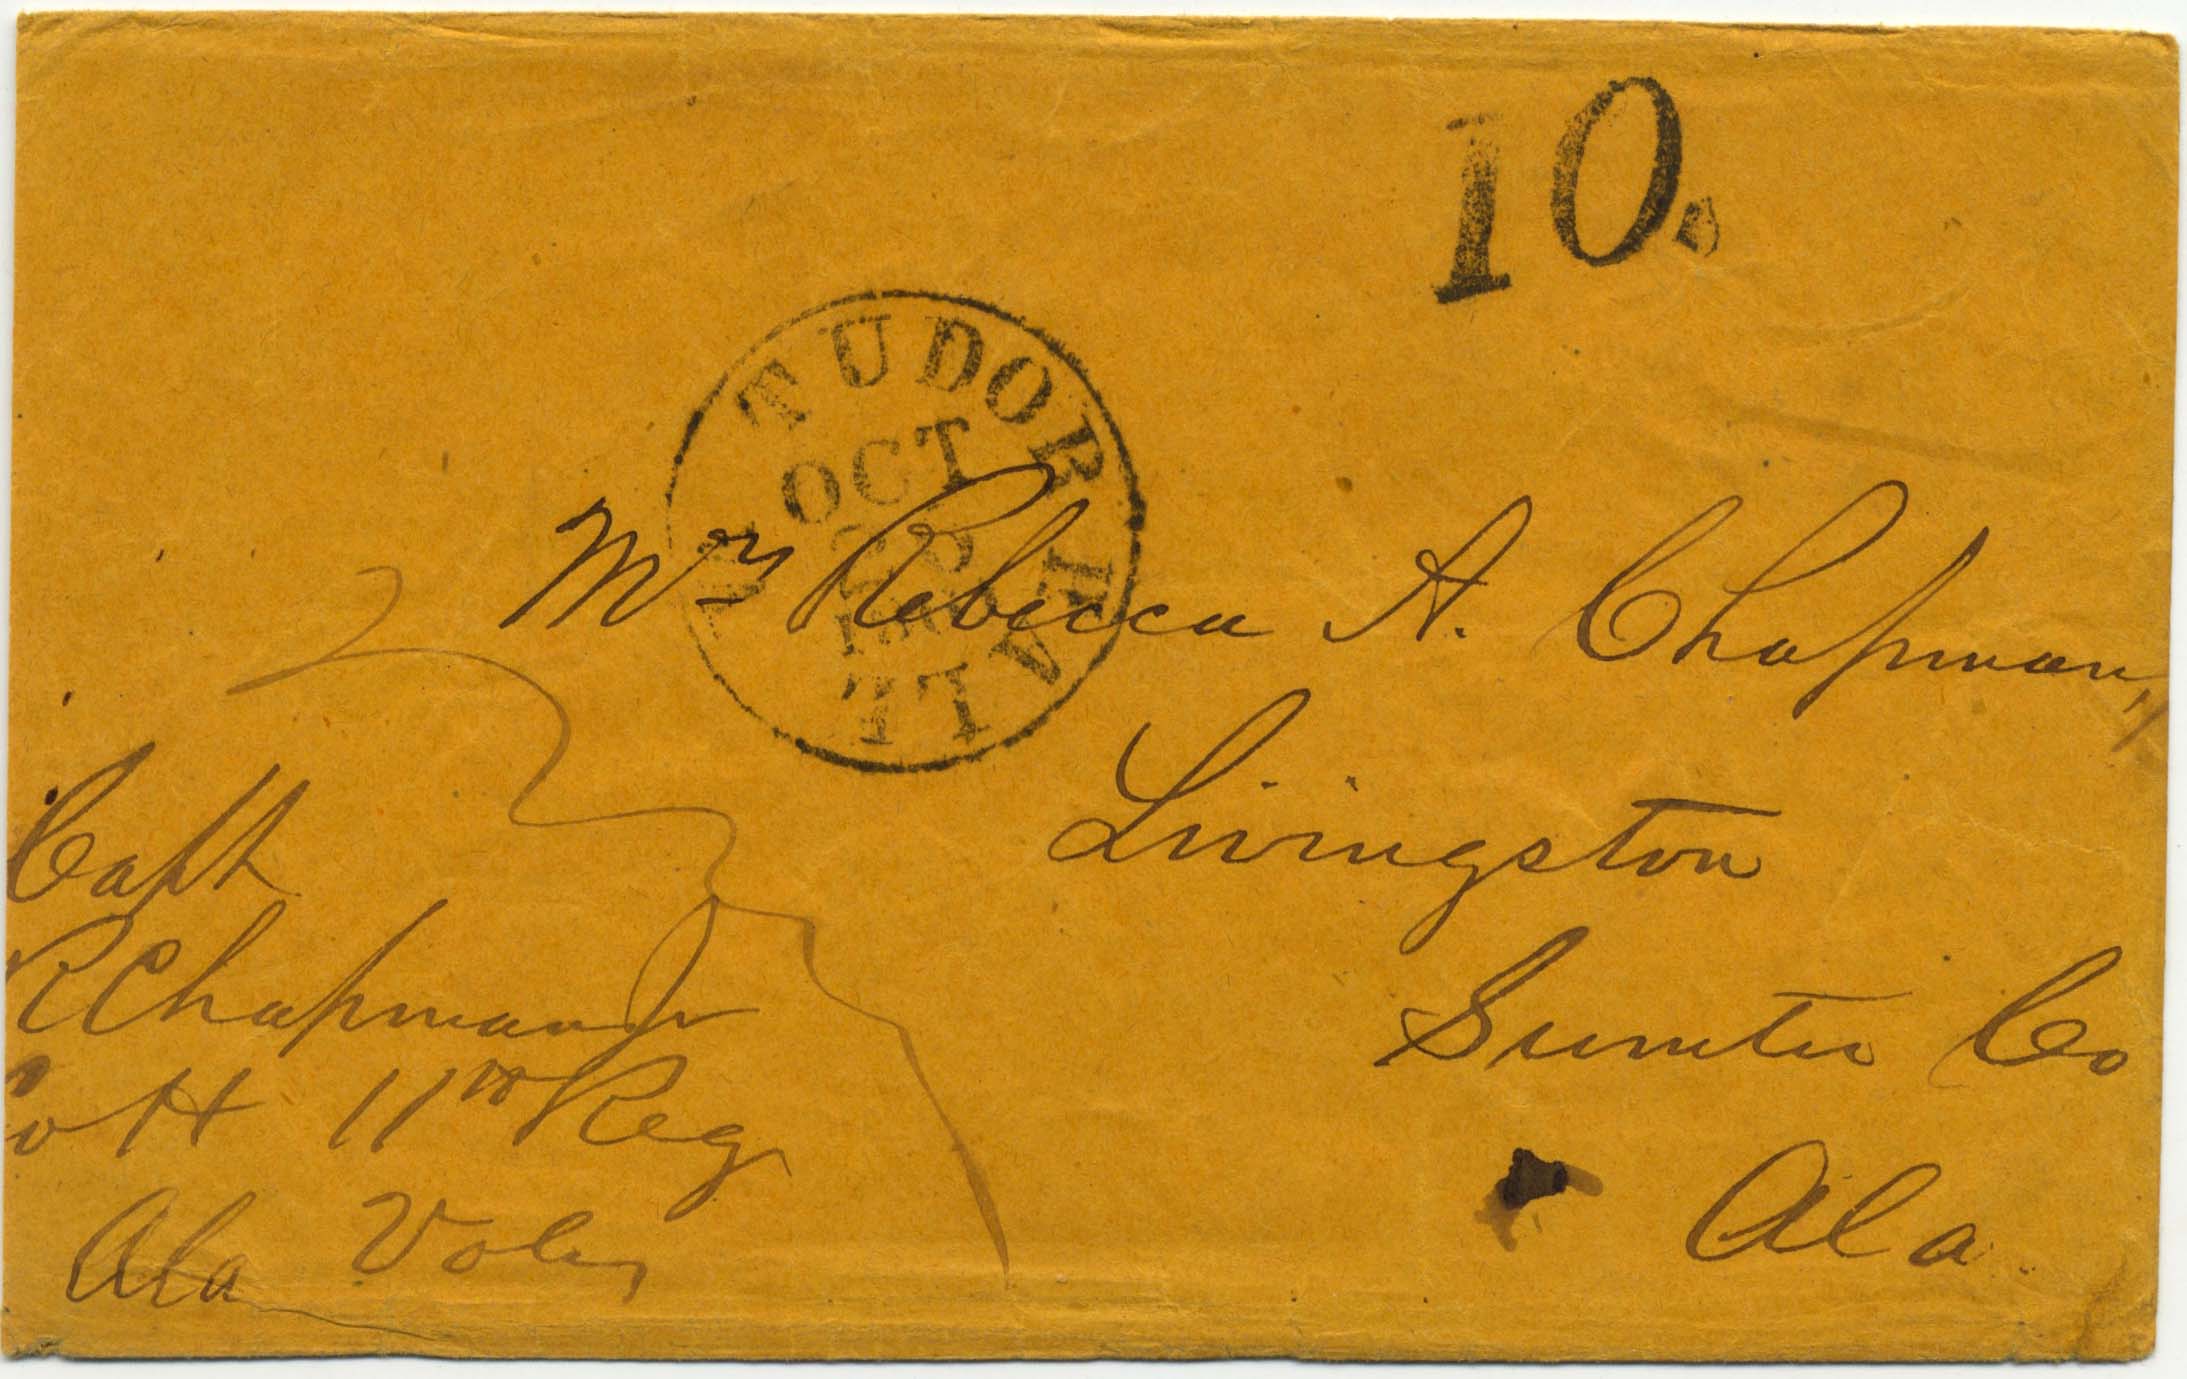 10.
TUDOR HALL
OCT
Mrs Rebecca A. Chapman,
Livingston
Sumter Co
Ala.
Capt
R Chapman
Co H 11th Reg
Ala Vols,